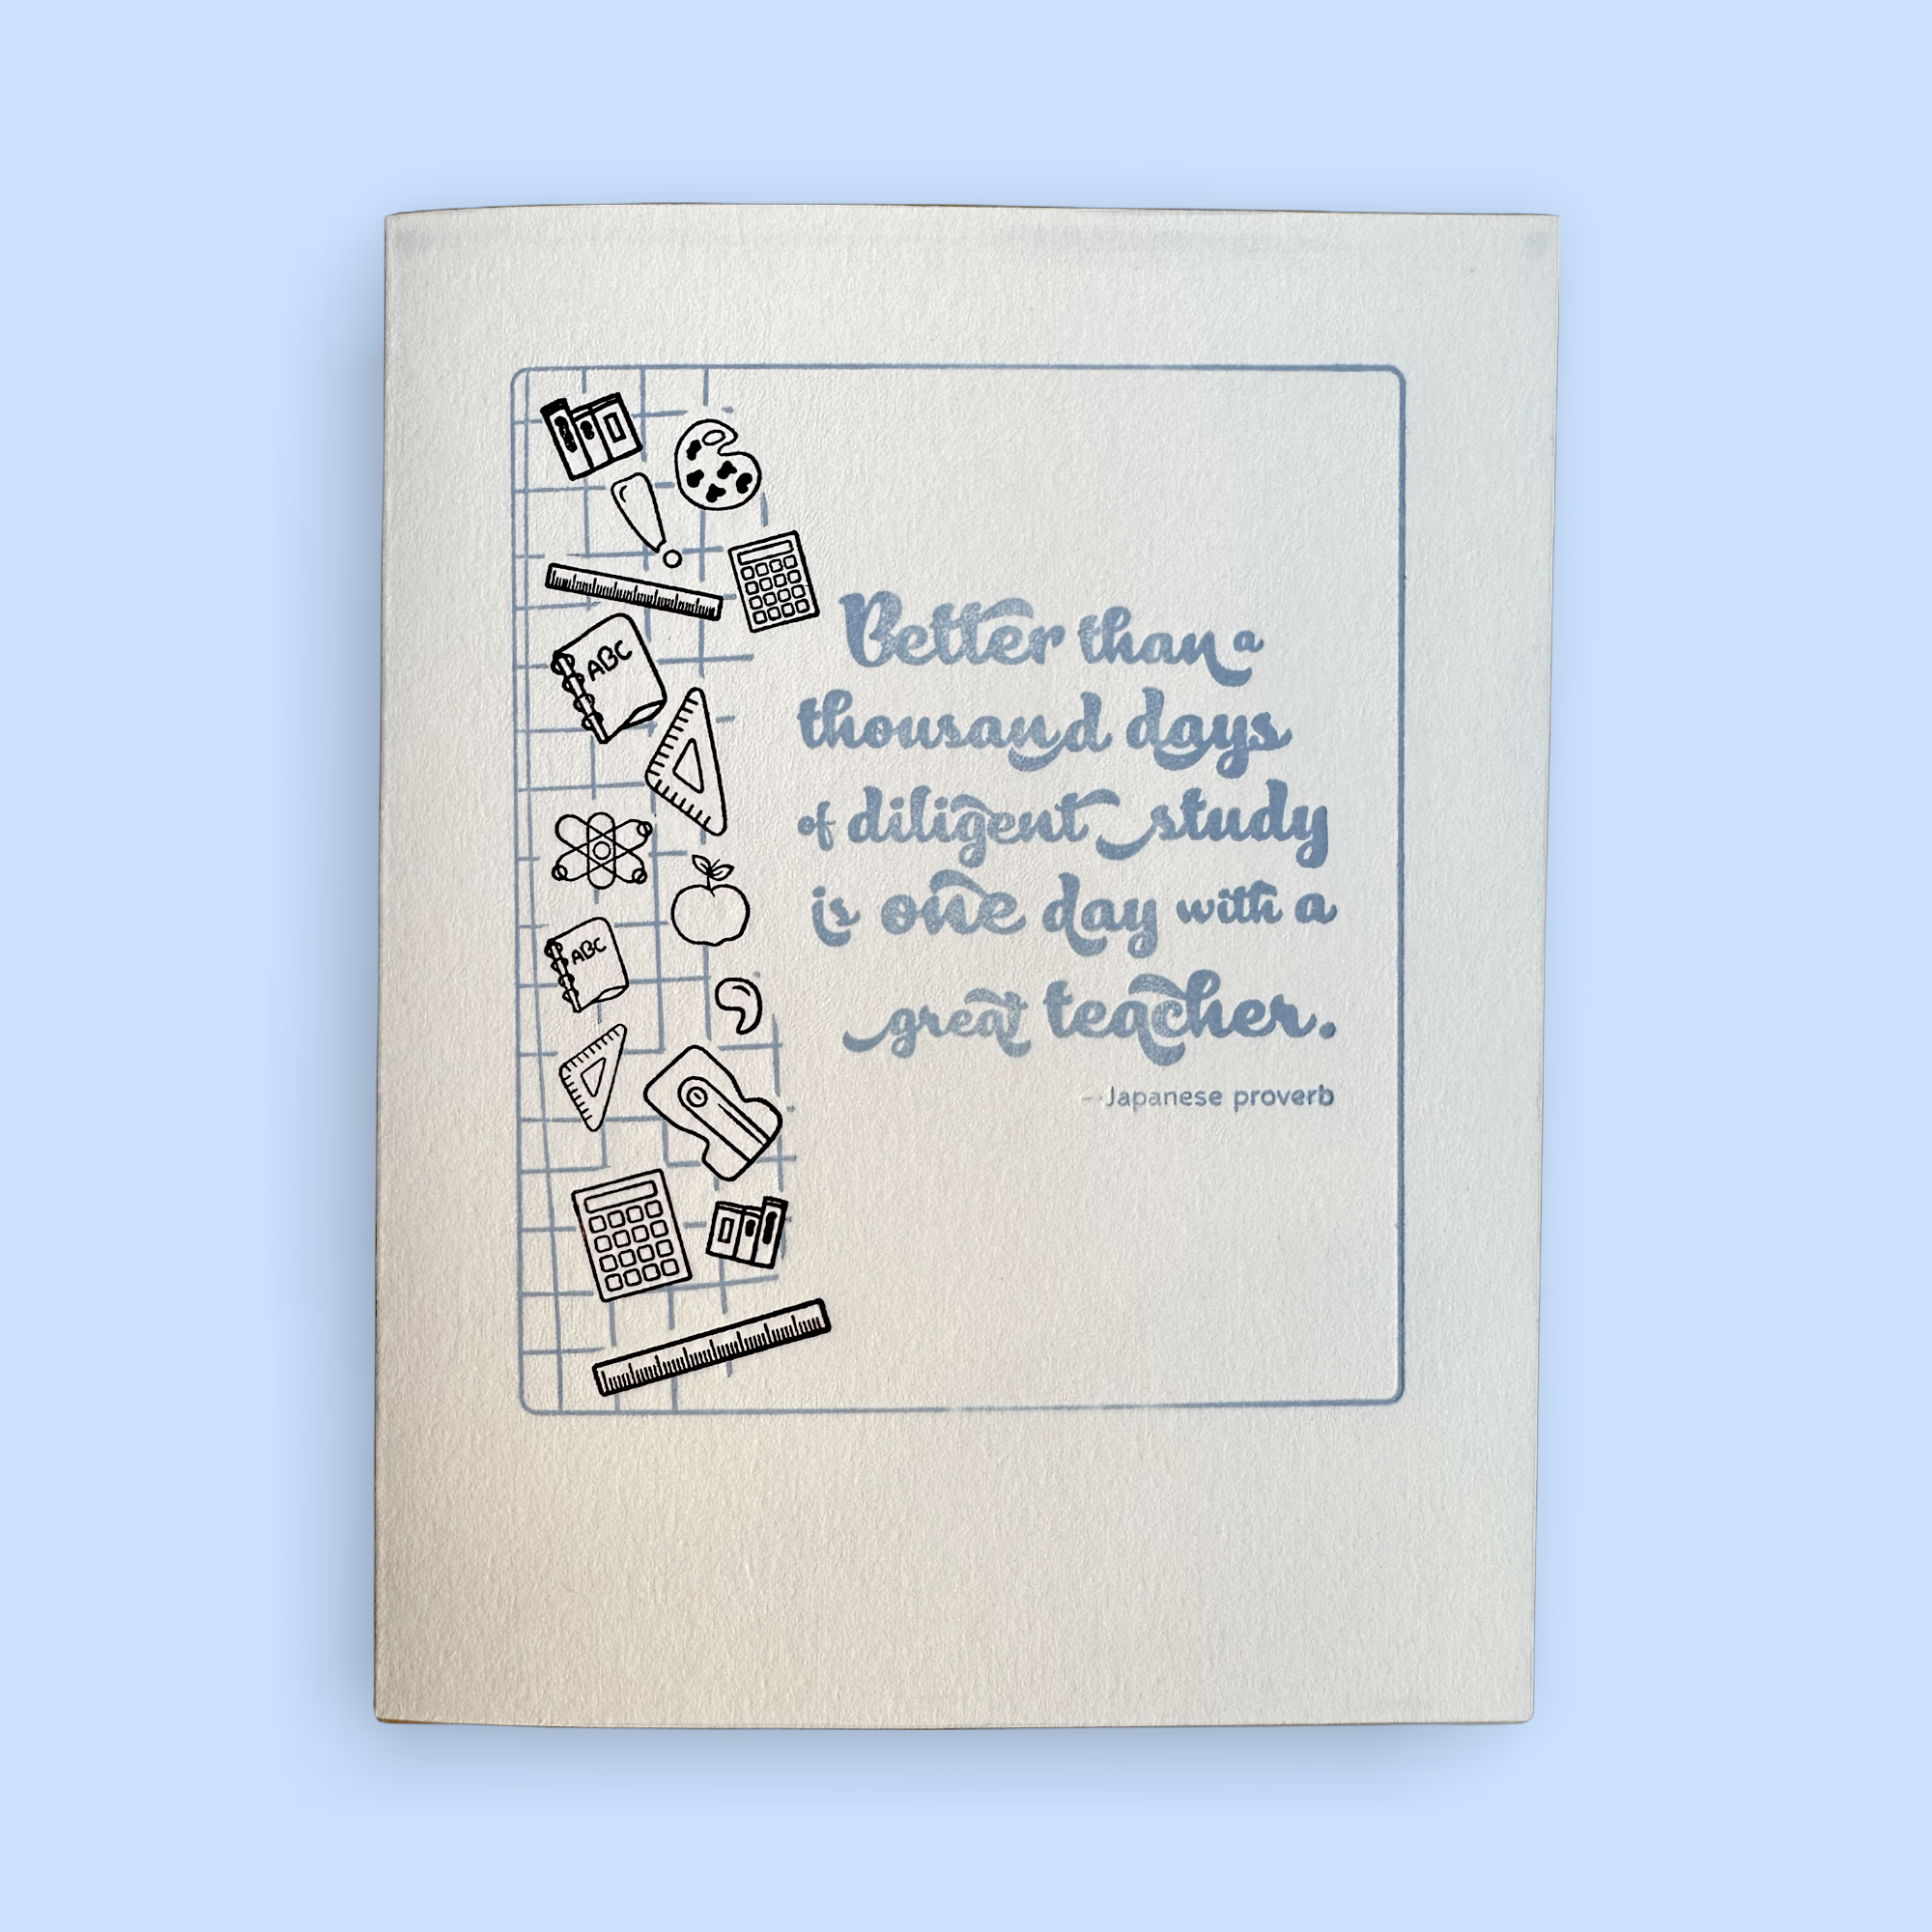 ABC
ABC
Better than a
thousand days
of diligent study
is one day with a
great teacher.
—Japanese proverb